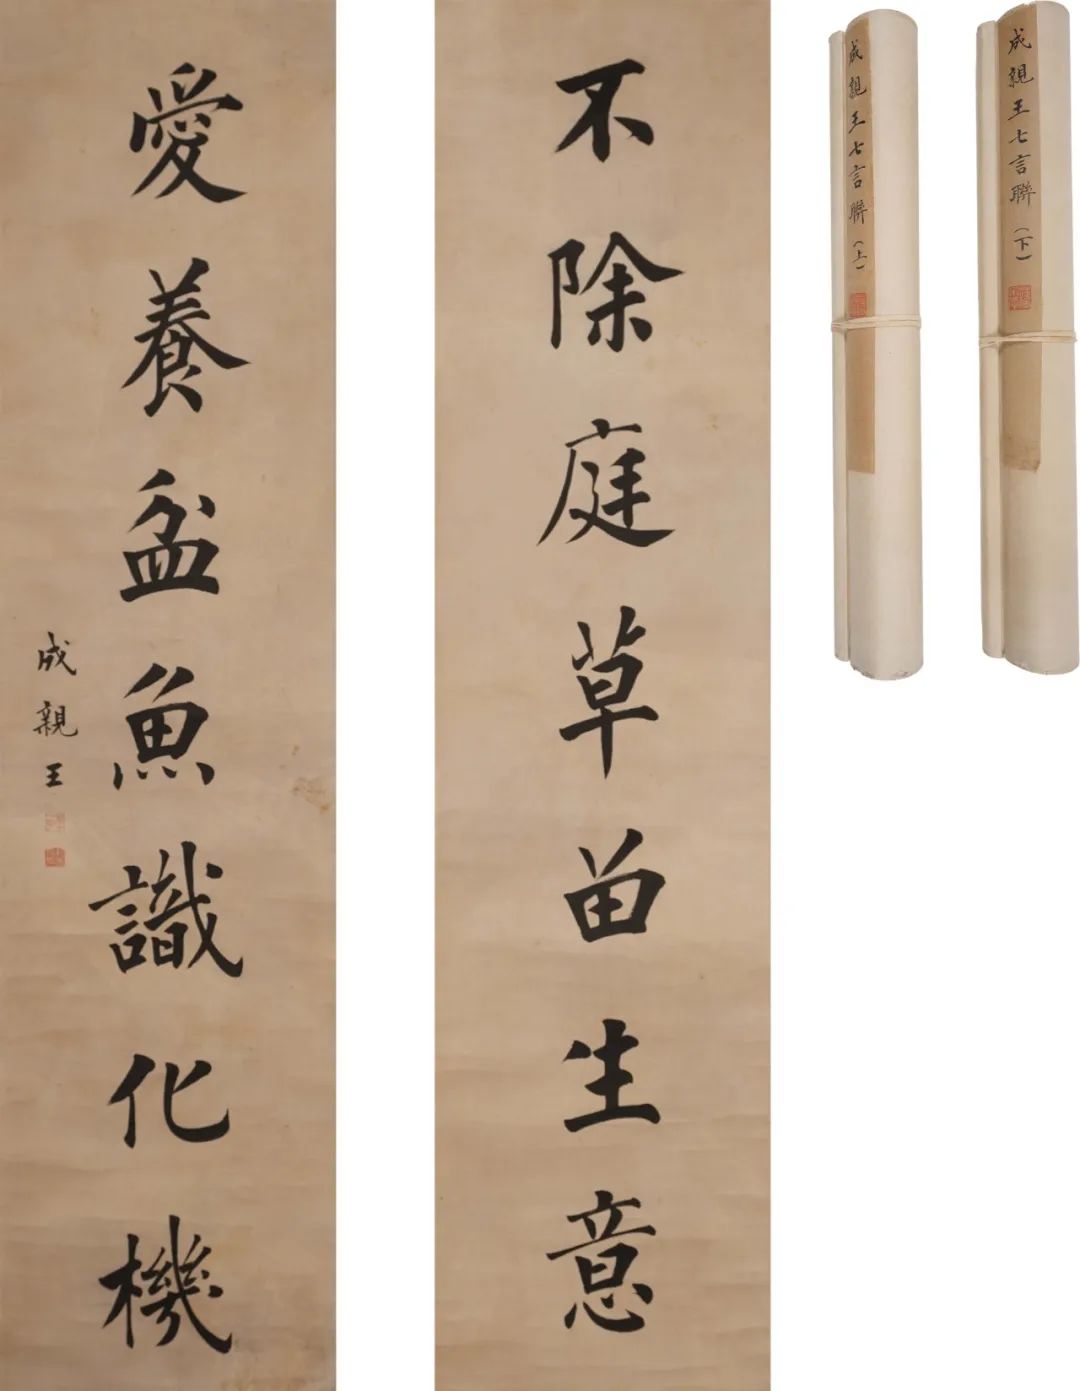 不除庭草畱生意
愛養盆魚識化機
成親王
成親王七言聯（上）
成親王七言聯（下）